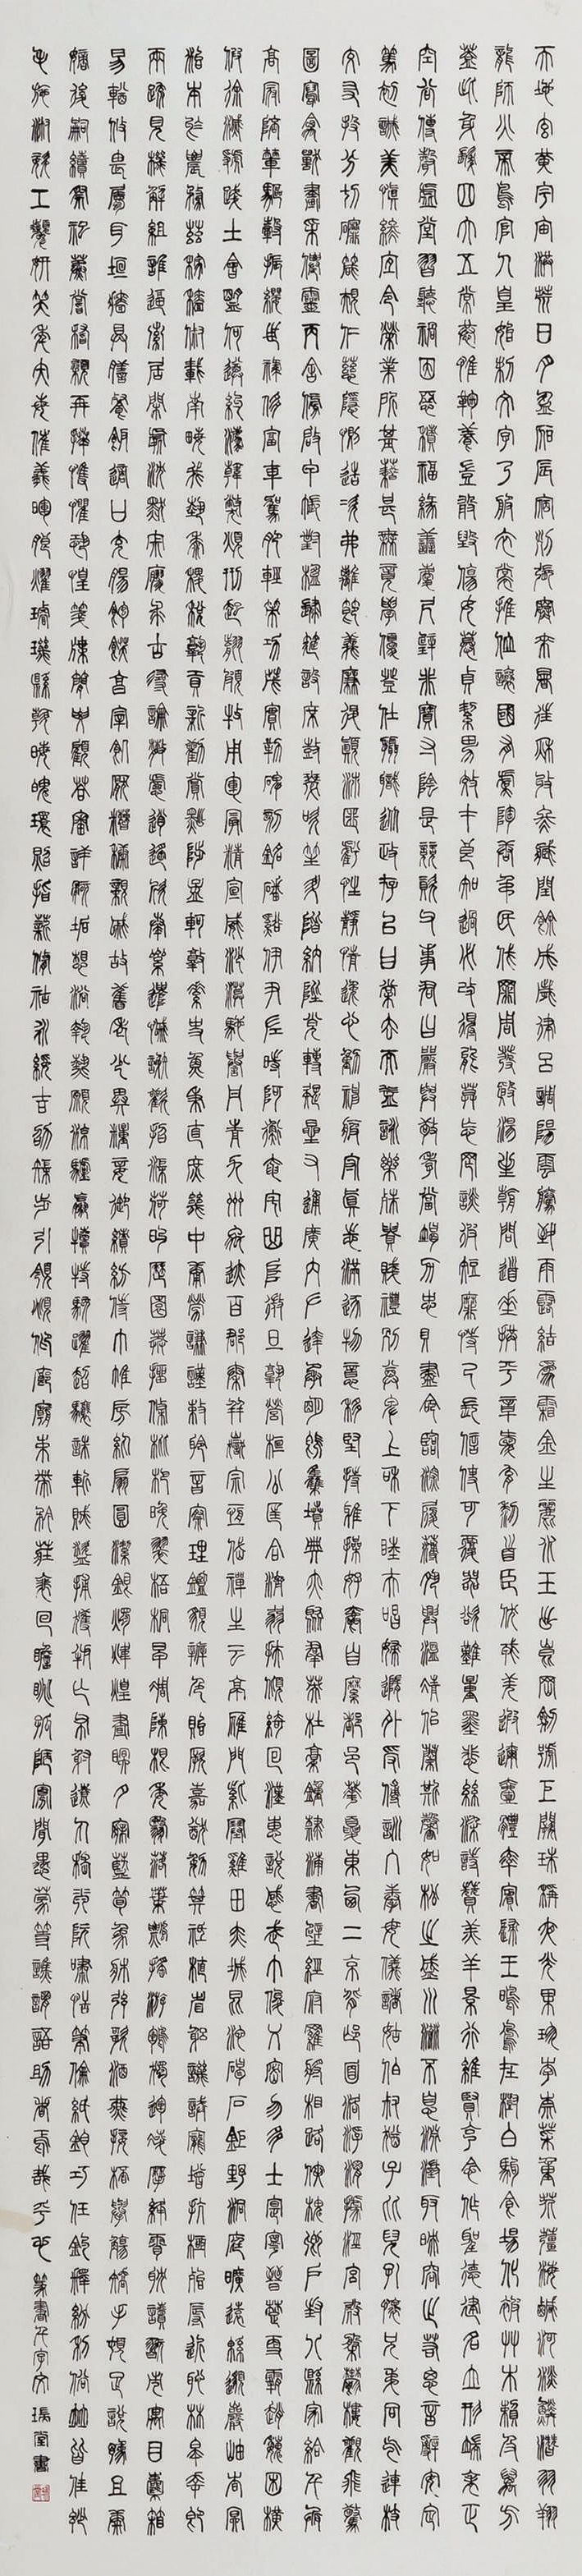 天地玄黃宇宙洪荒日月盈昃辰宿列張寒來暑往秋收冬藏閏餘成歲律呂調陽雲騰致雨露結為霜金生麗水玉出崑岡劍號巨闕珠稱夜光果珍李柰菜重芥薑海鹹河淡鱗潛羽翔
龍師火帝鳥官人皇始制文字乃服衣裳推位讓國有虞陶唐弔民伐罪周發殷湯坐朝問道垂拱平章愛育黎首臣伏戎羌遐邇壹體率賓歸王鳴鳳在樹白駒食場化被草木賴及萬方
蓋此身髮四大五常恭惟鞠養豈敢毀傷女慕貞絜男效才良知過必改得能莫忘罔談彼短靡恃己長信使可覆器欲難量墨悲絲染詩讚羔羊景行維賢克念作聖德建名立形端表正
空谷傳聲虛堂習聽禍因惡積福緣善慶尺璧非寶寸陰是競資父事君曰嚴與敬孝當竭力忠則盡命臨深履薄夙興溫凊似蘭斯馨如松之盛川流不息淵澄取映容止若思言辭安定
篤初誠美慎終宜令榮業所基藉甚無竟學優登仕攝職從政存以甘棠去而益詠樂殊貴賤禮別尊卑上和下睦夫唱婦隨外受傅訓入奉母儀諸姑伯叔猶子比兒孔懷兄弟同氣連枝
交友投分切磨箴規仁慈隱惻造次弗離節義廉退顛沛匪虧性靜情逸心動神疲守真志滿逐物意移堅持雅操好爵自縻都邑華夏東西二京背邙面洛浮渭據涇宮殿盤鬱樓觀飛驚
圖寫禽獸畫采仙靈丙舍傍啟甲帳對楹肆筵設席鼓瑟吹笙升階納陛弁轉疑星右通廣內左達承明既集墳典亦聚群英杜稿鍾隸漆書壁經府羅將相路俠槐卿戶封八縣家給千兵
高冠陪輦驅轂振纓世祿侈富車駕肥輕策功茂實勒碑刻銘磻溪伊尹佐時阿衡奄宅曲阜微旦孰營桓公匡合濟弱扶傾綺迴漢惠說感武丁俊乂密勿多士寔寧晉楚更霸趙魏困橫
假途滅虢踐土會盟何遵約法韓弊煩刑起翦頗牧用軍最精宣威沙漠馳譽丹青九州禹跡百郡秦并嶽宗恆岱禪主云亭雁門紫塞雞田赤城昆池碣石鉅野洞庭曠遠緜邈巖岫杳冥
治本於農務茲稼穡俶載南畝我藝黍稷稅熟貢新勸賞黜陟孟軻敦素史魚秉直庶幾中庸勞謙謹敕聆音察理鑑貌辨色貽厥嘉猷勉其祗植省躬譏誡寵增抗極殆辱近恥林皋幸即
兩疏見機解組誰逼索居閑處沈默寂寥求古尋論散慮逍遙欣奏累遣慼謝歡招渠荷的歷園莽抽條枇杷晚翠梧桐早凋陳根委翳落葉飄搖游鵾獨運凌摩絳霄耽讀翫市寓目囊箱
易輶攸畏屬耳垣牆具膳餐飯適口充腸飽飫烹宰飢厭糟糠親戚故舊老少異糧妾御績紡侍巾帷房紈扇圓潔銀燭煒煌晝眠夕寐藍筍象牀弦歌酒讌接杯舉觴矯手頓足悅豫且康
嫡後嗣續祭祀蒸嘗稽顙再拜悚懼恐惶牋牒簡要顧答審詳骸垢想浴執熱願涼驢騾犢特駭躍超驤誅斬賊盜捕獲叛亡布射遼丸嵇琴阮嘯恬筆倫紙鈞巧任釣釋紛利俗並皆佳妙
毛施淑姿工顰妍笑年矢每催羲暉朗曜璇璣懸斡晦魄環照指薪修祜永綏吉劭矩步引領俯仰廊廟束帶矜莊徘徊瞻眺孤陋寡聞愚蒙等誚謂語助者焉哉乎也 篆書千字文 堂書